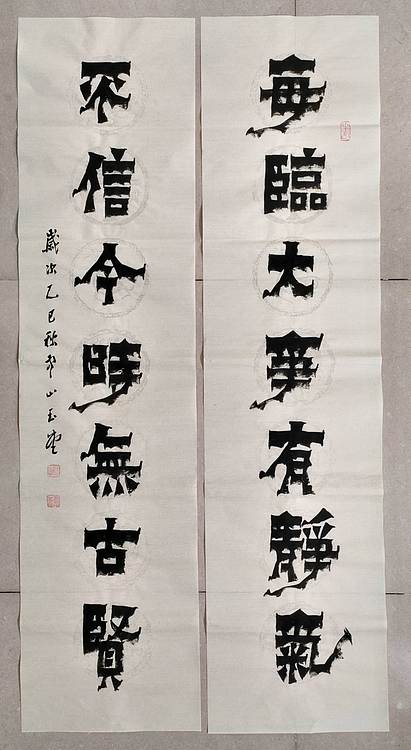 每臨大事有靜氣
不信今時無古賢
歲次乙巳秋